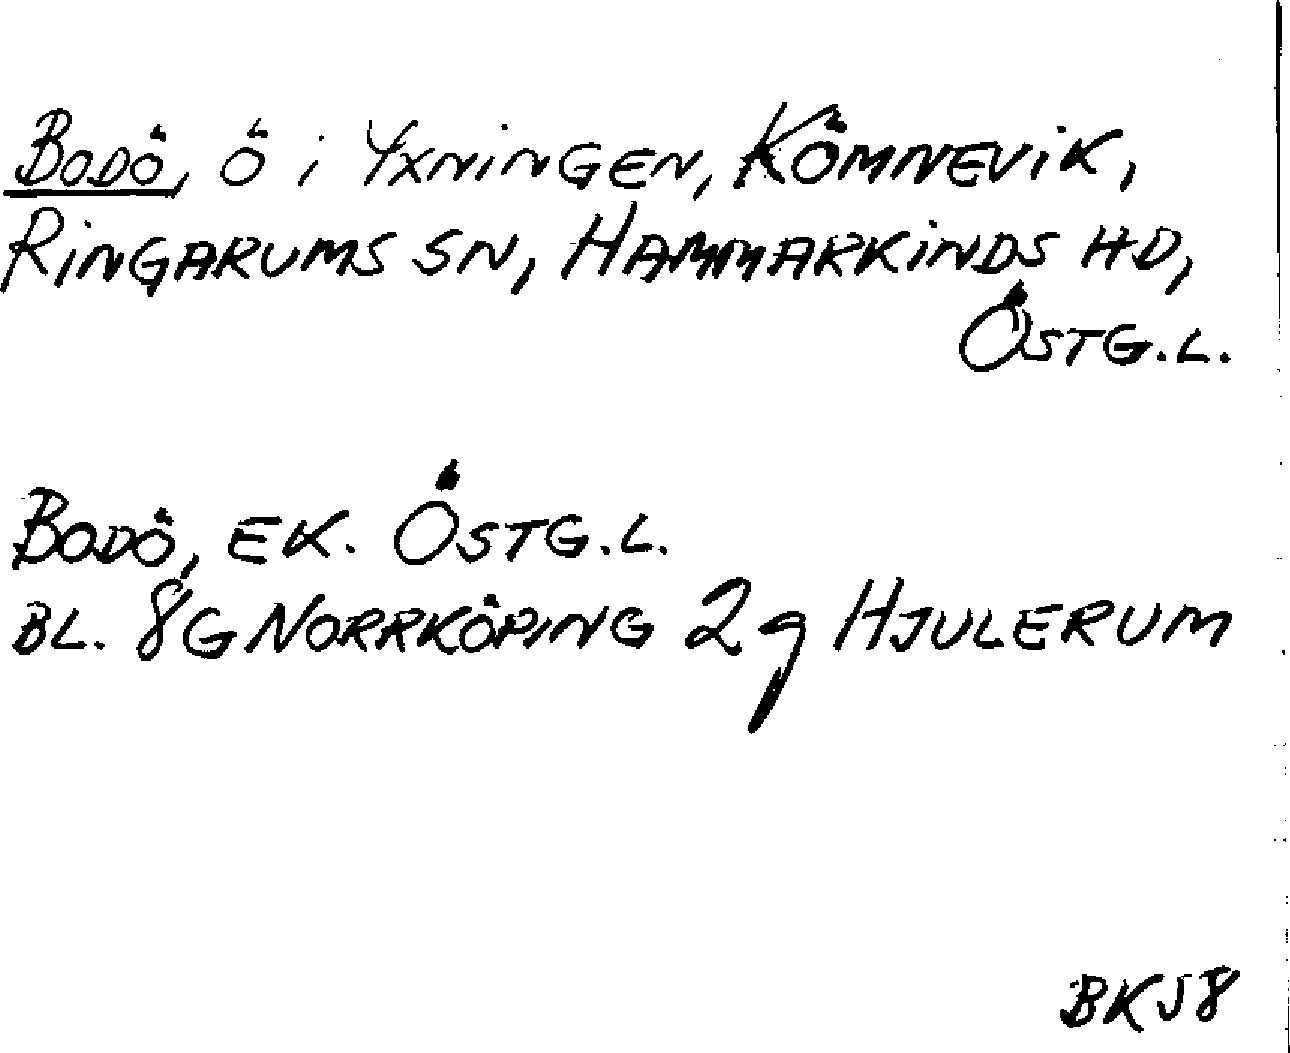 BODÖ, Ö i YXNINGEN, KÖMNEVIK,
RINGARUMS SN, HAMMARKINDS HD,
ÖSTG.L.
BODÖ, EK. ÖSTG.L.
BL. 8G NORRKÖPING 2g HJULERUM
BKJ8